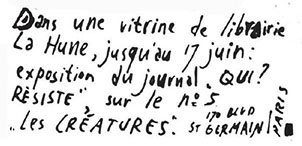 Dans une vitrine de librairie
La Hune, jusqu'au 17 juin:
exposition du journal. QUI?
RÉSISTE", sur le nº 5
"Les CRÉATURES". 170 BLVD ST GERMAIN PARIS